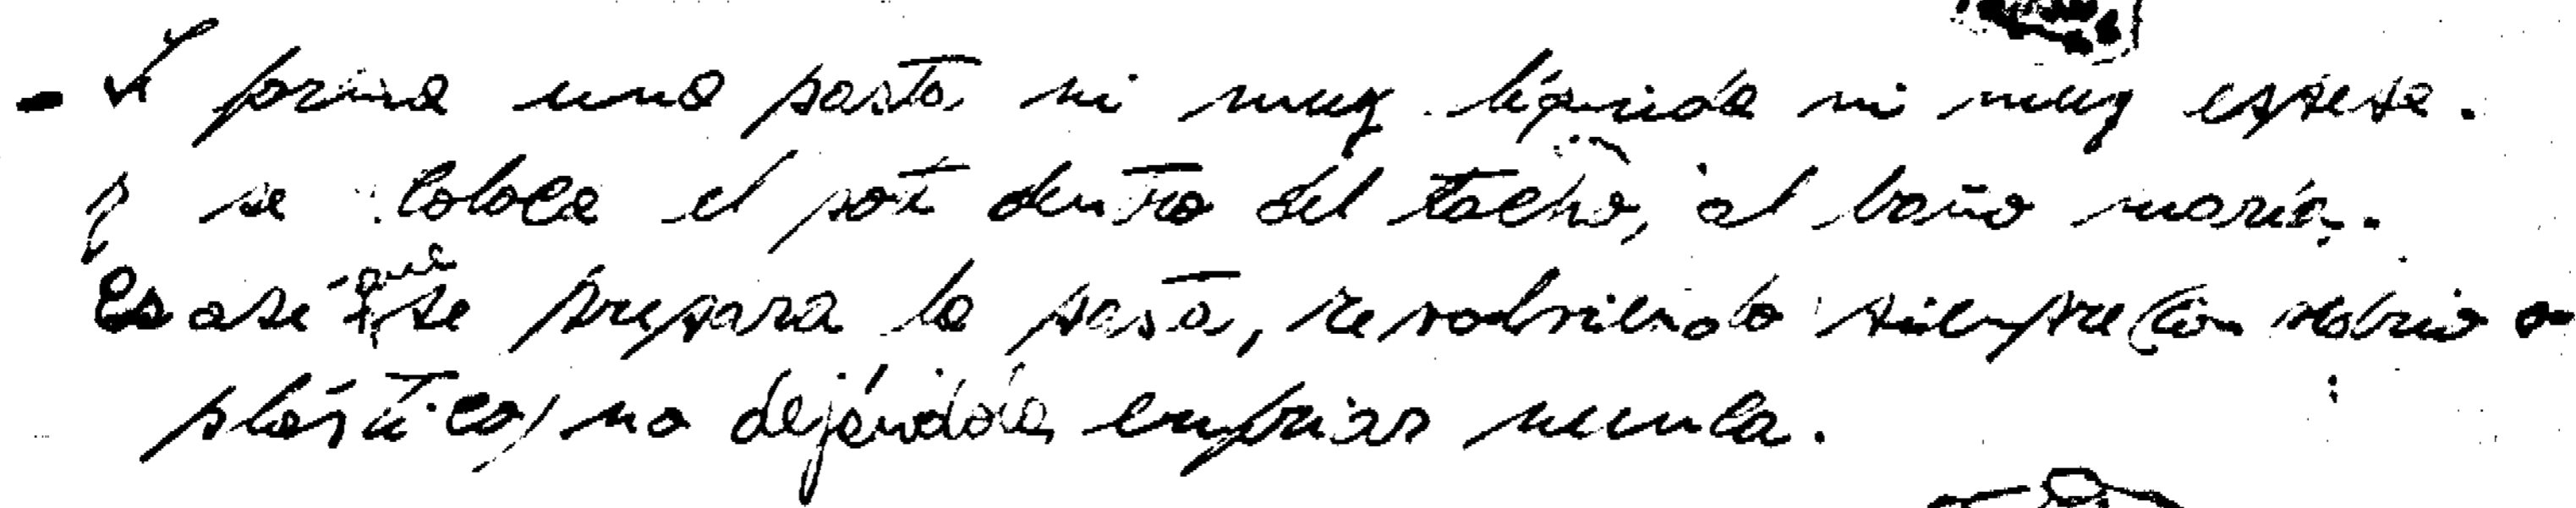 - Se forma una pasta ni muy líquida ni muy espesa.
y se coloca el pote dentro del tacho, al baño maría.
Es así que se prepara la pasta, revolviendo siempre (con vidrio o
plástico) no dejándola enfriar nunca.